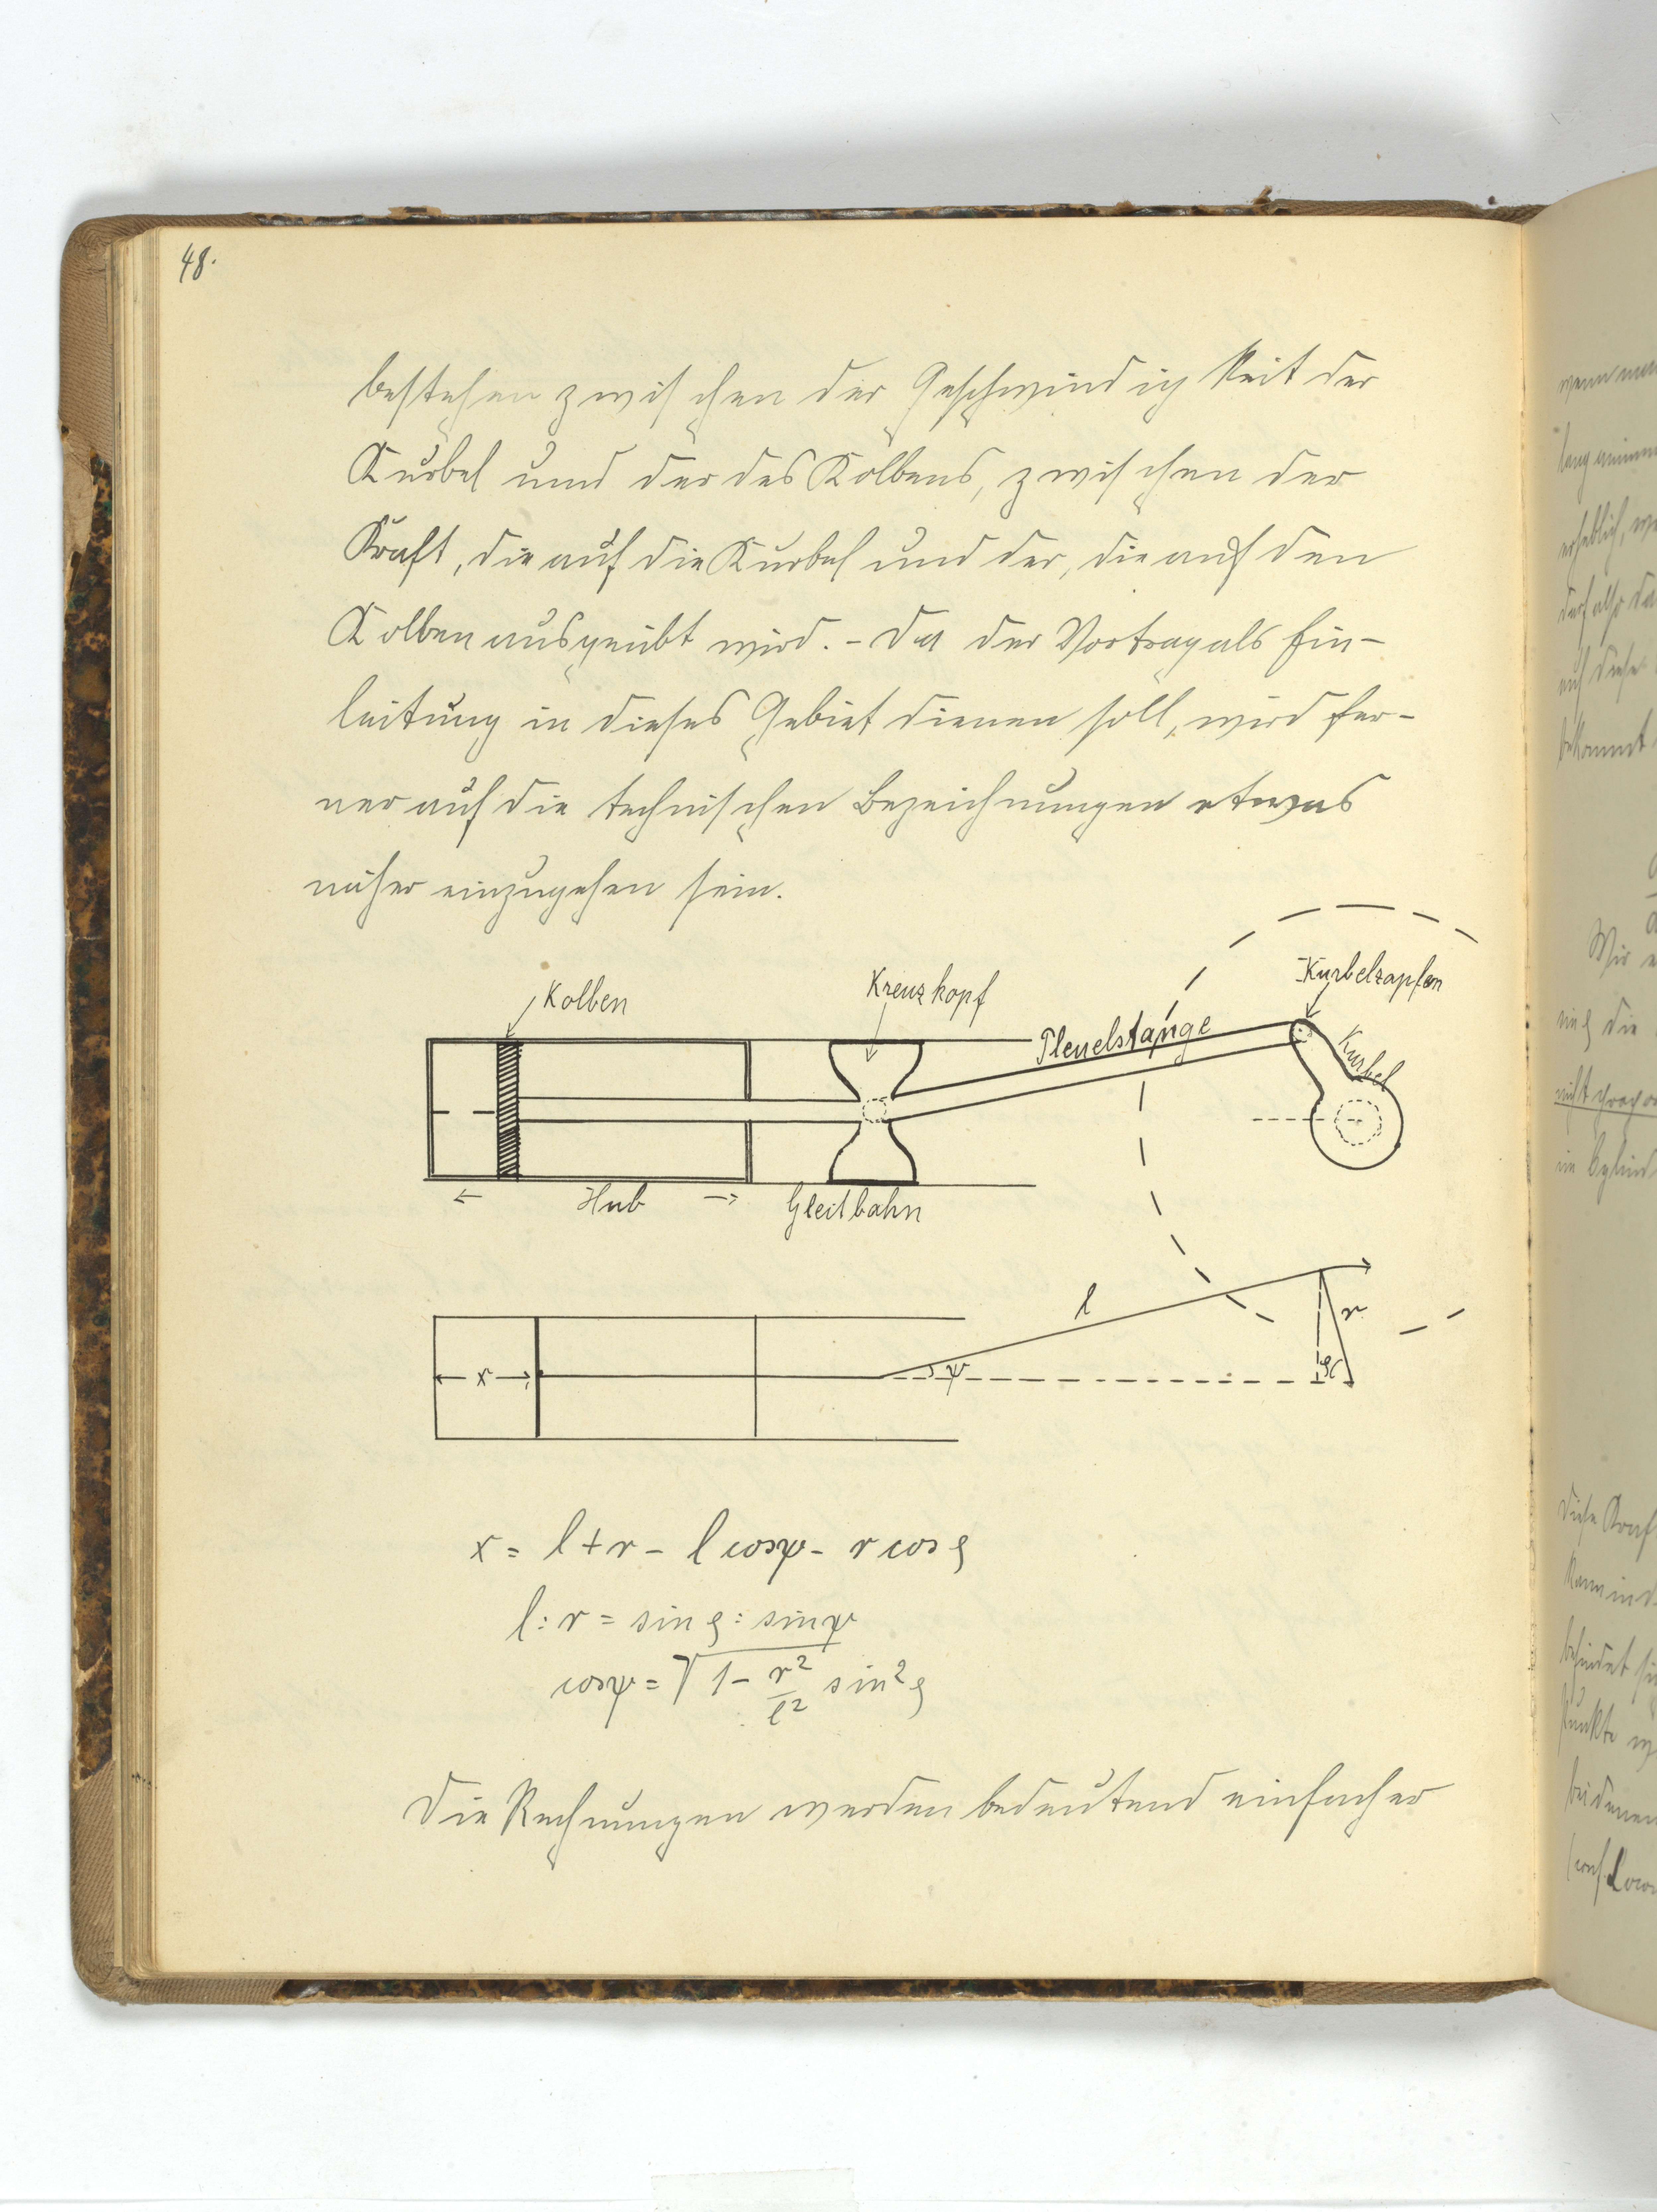 48.
bestehen zwischen der Geschwindigkeit der
Kurbel und der des Kolbens, zwischen der
Kraft, die auf die Kurbel und der, die auf den
Kolben ausgeübt wird. – Da der Vortrag als Ein-
leitung in dieses Gebiet dienen soll, wird fer-
ner auf die technischen Bezeichnungen etwas
näher einzugehen sein.
Kolben
Kreuzkopf
Kurbelzapfen
Pleuelstange
Kurbel
← Hub →
Gleitbahn
l
r
x
ψ
ϱ
x = l + r – l cosψ – r cos ϱ
l : r = sin ϱ : sin ψ
cosψ = √1 – r²/l² sin²ϱ
Die Rechnungen werden bedeutend einfacher
wenn man
Wir
nicht
Diese Kraf
kann in d
befindet si
Punkte
bei denen